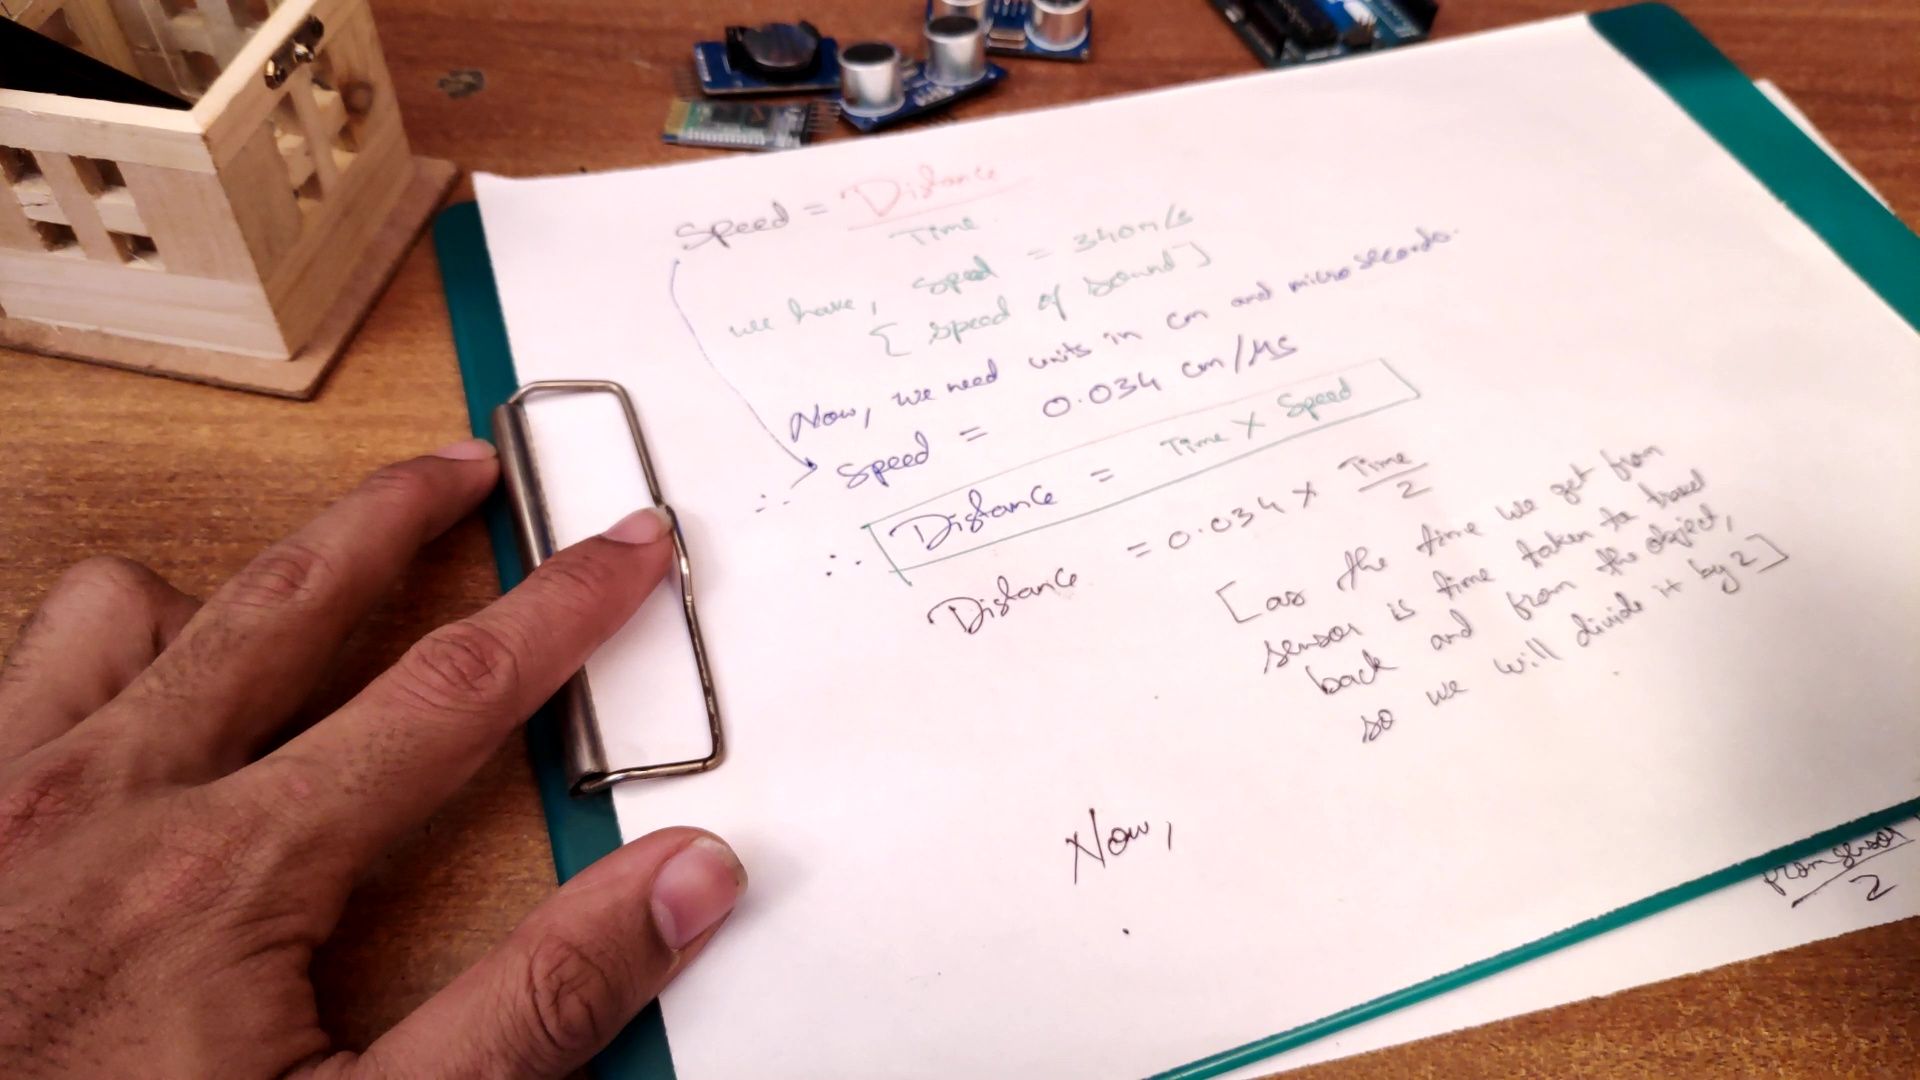 Speed = Distance
Time
we have, Speed = 340m/s
[ speed of sound ]
Now, we need units in cm and microseconds.
∴ Speed = 0.034 cm/μs
∴ Distance = Time X Speed
Distance = 0.034 X Time
2
[as the time we get from
sensor is time taken to travel
back and from the object,
so we will divide it by 2]
Now,
from sensor
2